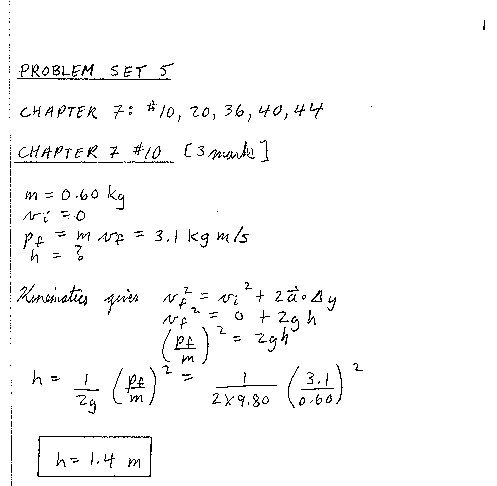 PROBLEM SET 5
CHAPTER 7: #10, 20, 36, 40, 44
CHAPTER 7 #10 [3 marks]
m = 0.60 kg
vi = 0
pf = m vf = 3.1 kg m/s
h = ?
Kinematics gives vf² = vi² + 2a⃗∘Δy
vf² = 0 + 2gh
(pf/m)² = 2gh
h = 1/2g (pf/m)² = 1/(2×9.80) (3.1/0.60)²
h = 1.4 m